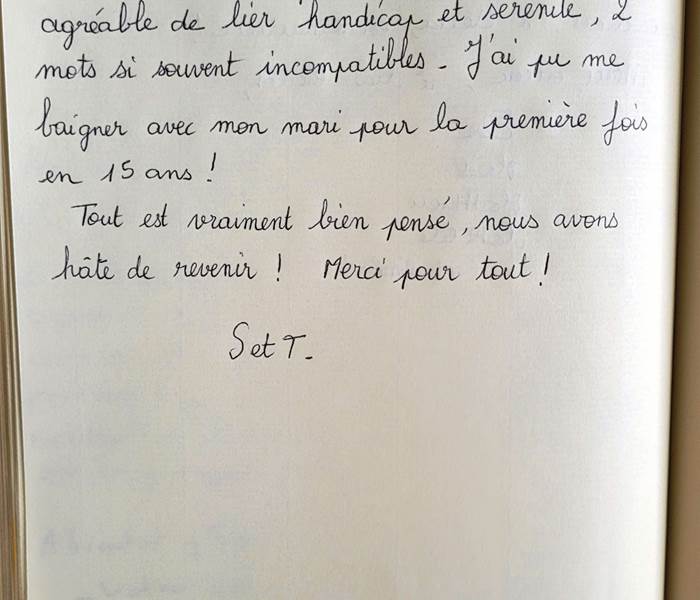 agréable de lier handicap et sérénité, 2
mots si souvent incompatibles - J'ai pu me
baigner avec mon mari pour la première fois
en 15 ans !
Tout est vraiment bien pensé, nous avons
hâte de revenir ! Merci pour tout !
S et T.